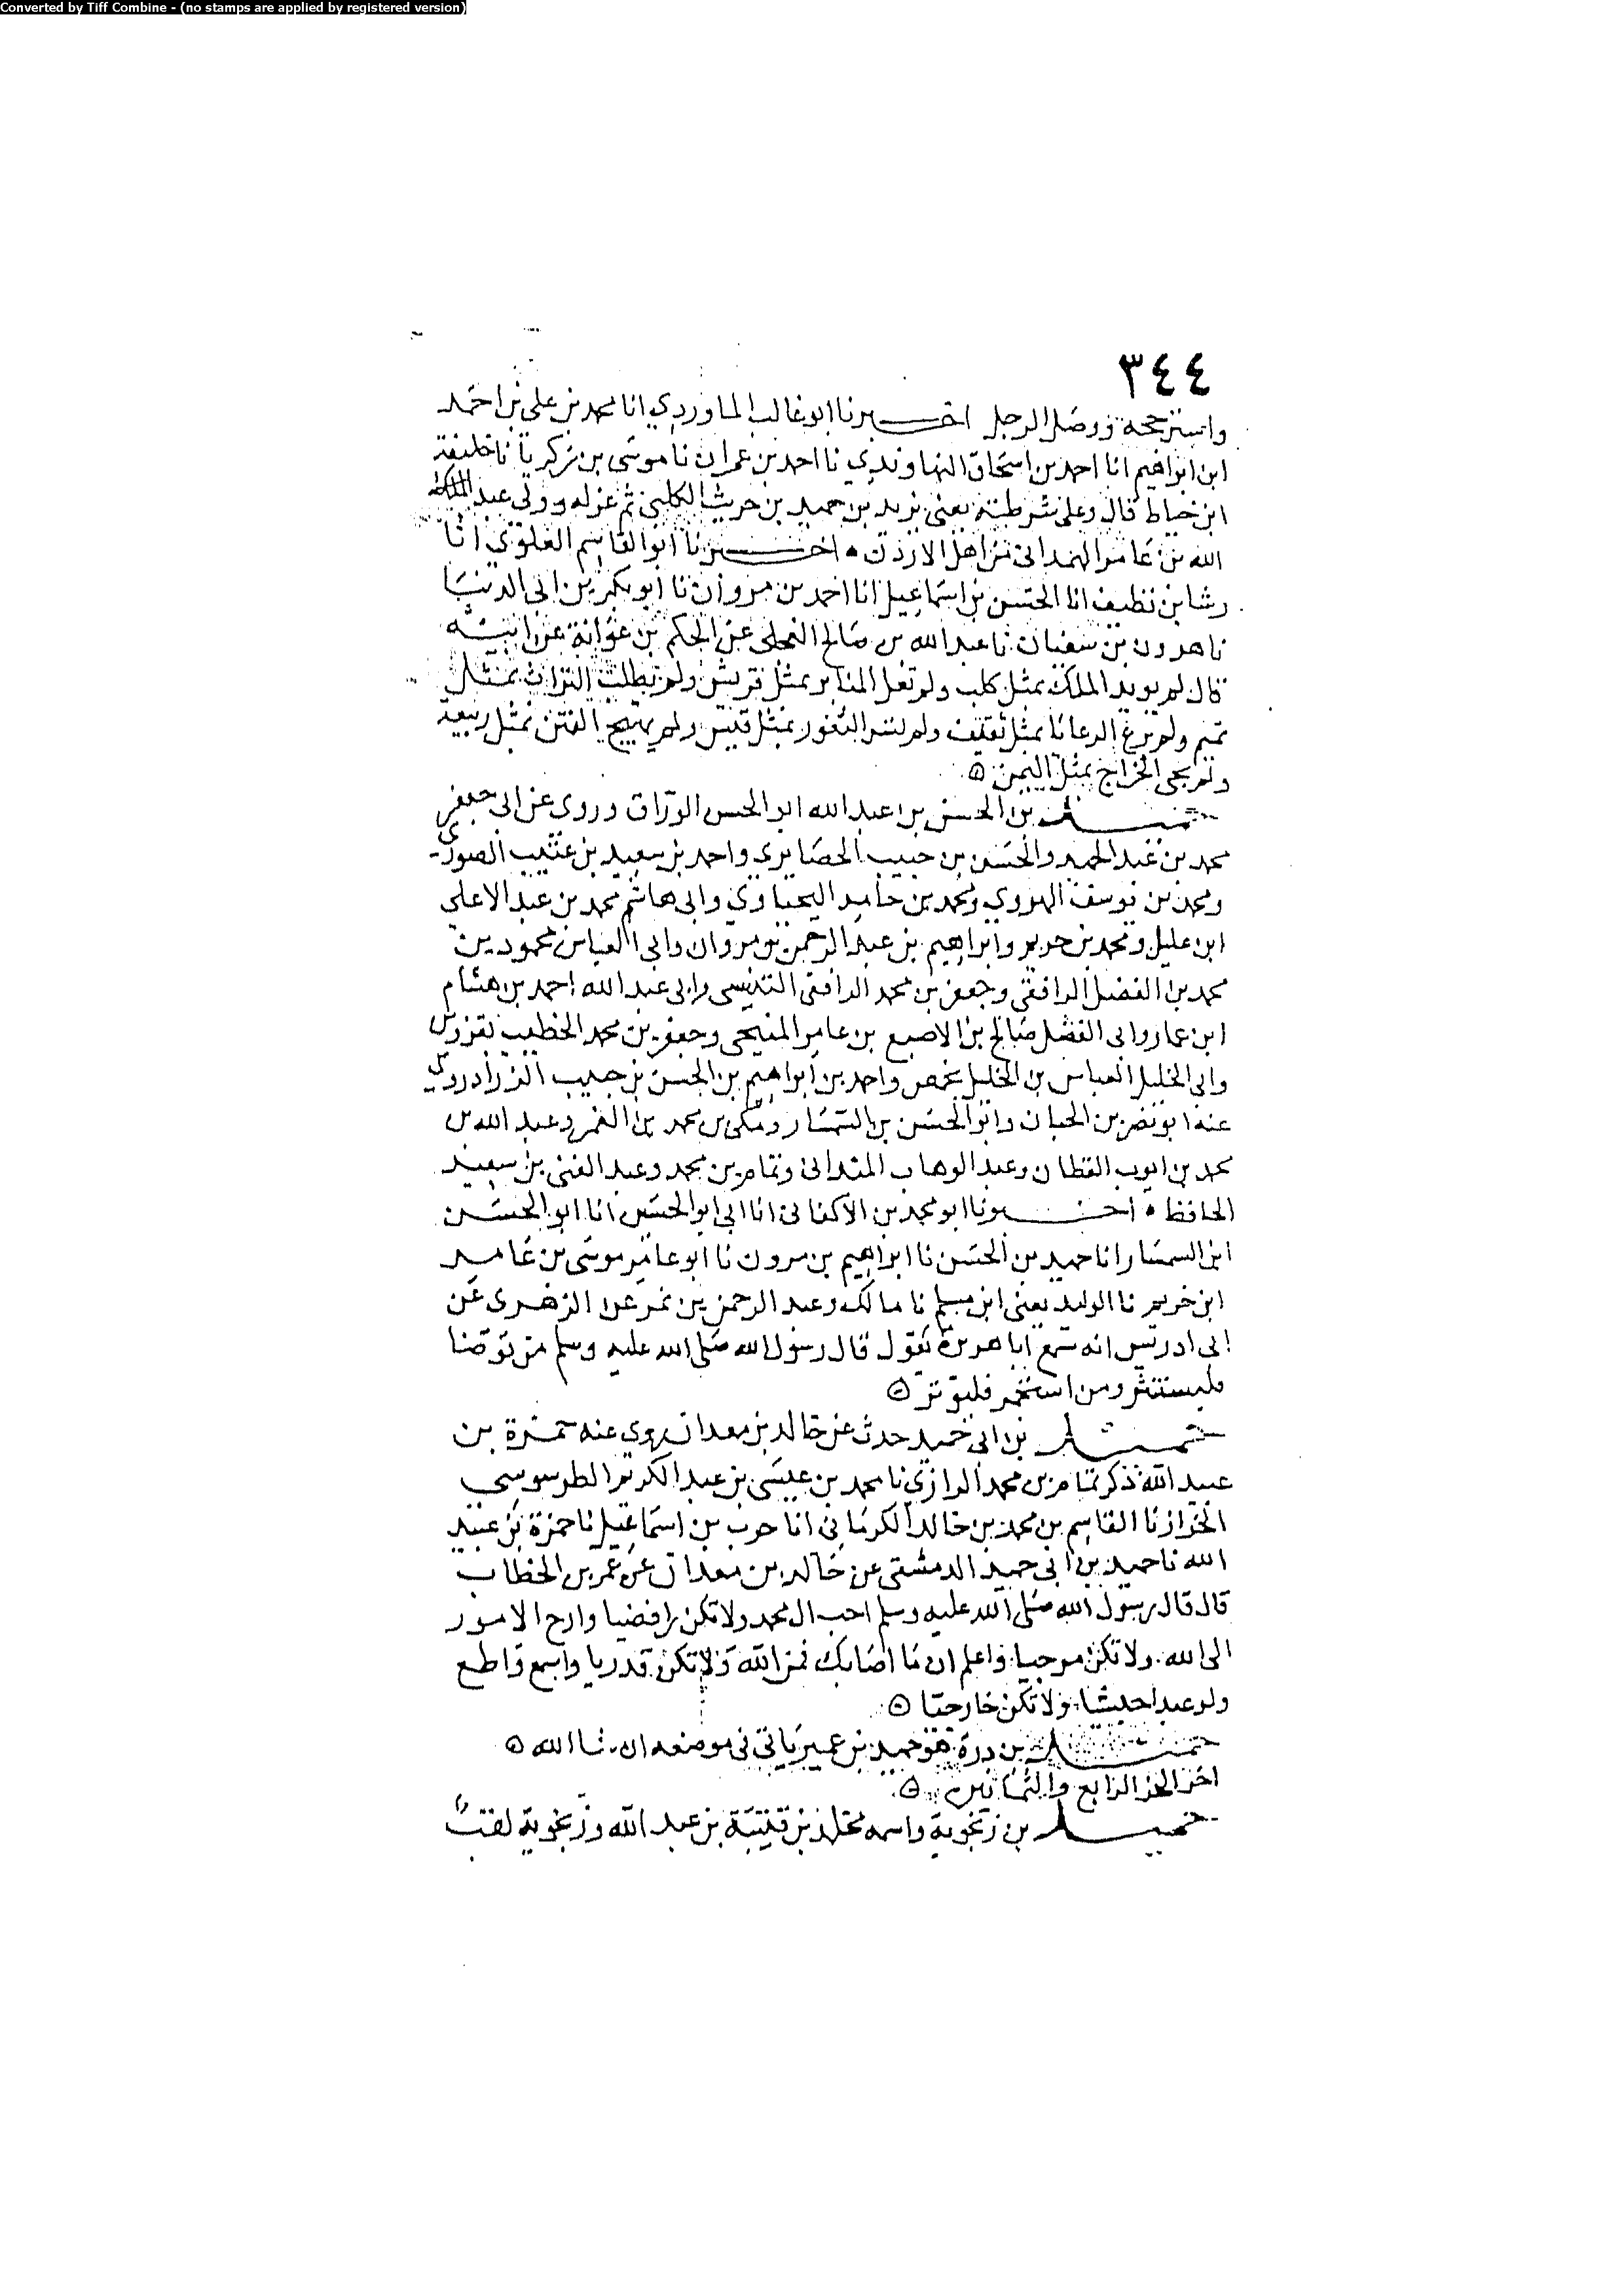 Converted by Tiff Combine - (no stamps are applied by registered version)
٣٤٤
واسترجحه ووصل الرجل اخبرنا ابو غالب الماوردي انا محمد بن علي بن احمد
ابن ابراهيم انا احمد بن اسحاق النهاوندي نا احمد بن عمران نا موسى بن زكريا نا خليفة
ابن خياط قال وعلى شرطته يعني يزيد بن حميد بن حريث الكلبي ثم عزله وولى عبد
الله بن عامر الهمداني من اهل الاردن اخبرنا ابو القاسم العلوي انا
رشا بن نظيف انا الحسن بن اسماعيل انا احمد بن مروان نا ابو بكر بن ابي الدنيا
نا هرون بن سفيان نا عبد الله بن صالح العجلي عن الحكم بن عوانة عن ابيه
قال لم يويد الملك بمثل كلب ولم تعل المنابر بمثل قريش ولم تطلب التراث بمثل
تميم ولم ترع الرعايا بمثل ثقيف ولم تسد الثغور بمثل قيس ولم يهيج الفتن بمثل ربيعة
ولم يجبى الخراج بمثل اليمن ه
حميد بن الحسن بن عبد الله ابو الحسن الوراق وروى عن ابي جعفر
محمد بن عبد الحميد والحسن بن حبيب الحصايري واحمد بن سعيد بن عتيب الصوري
ومحمد بن يوسف الهروي ومحمد بن حامد اليحياوي وابي هاشم محمد بن عبد الاعلى
ابن عليل ومحمد بن خريم وابراهيم بن عبد الرحمن بن مروان وابي العباس محمود بن
محمد بن الفضل الرافقي وجعفر بن محمد الرافقي التنيسي وابي عبد الله احمد بن هشام
ابن عمار وابي الفضل صالح بن الاصبع بن عامر المنبجي وجعفر بن محمد الخطيب بقزوين
وابي الخليل العباس بن الخليل بحمص واحمد بن ابراهيم بن الحسن بن حبيب الزراد روى
عنه ابو نصر بن الحبان وابو الحسن بن السمسار ومكي بن محمد بن الغمر وعبد الله بن
محمد بن ايوب القطان وعبد الوهاب الميداني وتمام بن محمد وعبد الغني بن سعيد
الحافظ اخبرنا ابو محمد بن الاكفاني انا ابي ابو الحسين انا ابو الحسن
ابن السمسار انا حميد بن الحسن نا ابراهيم بن مرون نا ابو عامر موسى بن عامر
ابن خريم نا الوليد يعني ابن مسلم نا مالك وعبد الرحمن بن نمر عن الزهري عن
ابي ادريس انه سمع ابا هريرة يقول قال رسول الله صلى الله عليه وسلم من توضا
فليستنثر ومن استجمر فليوتر ه
حميد بن ابي حميد حدث عن خالد بن معدان روى عنه حمزة بن
عبيد الله ذكر تمام بن محمد الرازي نا محمد بن عيسى بن عبد الكريم الطرسوسي
الخزاز نا القاسم بن محمد بن خالد الكرماني انا حرب بن اسماعيل نا حمزة بن عبيد
الله نا حميد بن ابي حميد الدمشقي عن خالد بن معدان عن عمر بن الخطاب
قال قال رسول الله صلى الله عليه وسلم احب ال محمد ولا تكن رافضيا وارج الامور
الى الله ولا تكن مرجيا واعلم ان ما اصابك فمن الله ولا تكن قدريا واسمع واطع
ولو عبدا حبشيا ولا تكن خارجيا ه
حميد بن درة هو حميد بن عمير ياتي في موضعه ان شا الله ه
اخر الجز الرابع والثمانين ه
حميد بن زنجوية واسمه مخلد بن قتيبة بن عبد الله وزنجوية لقب